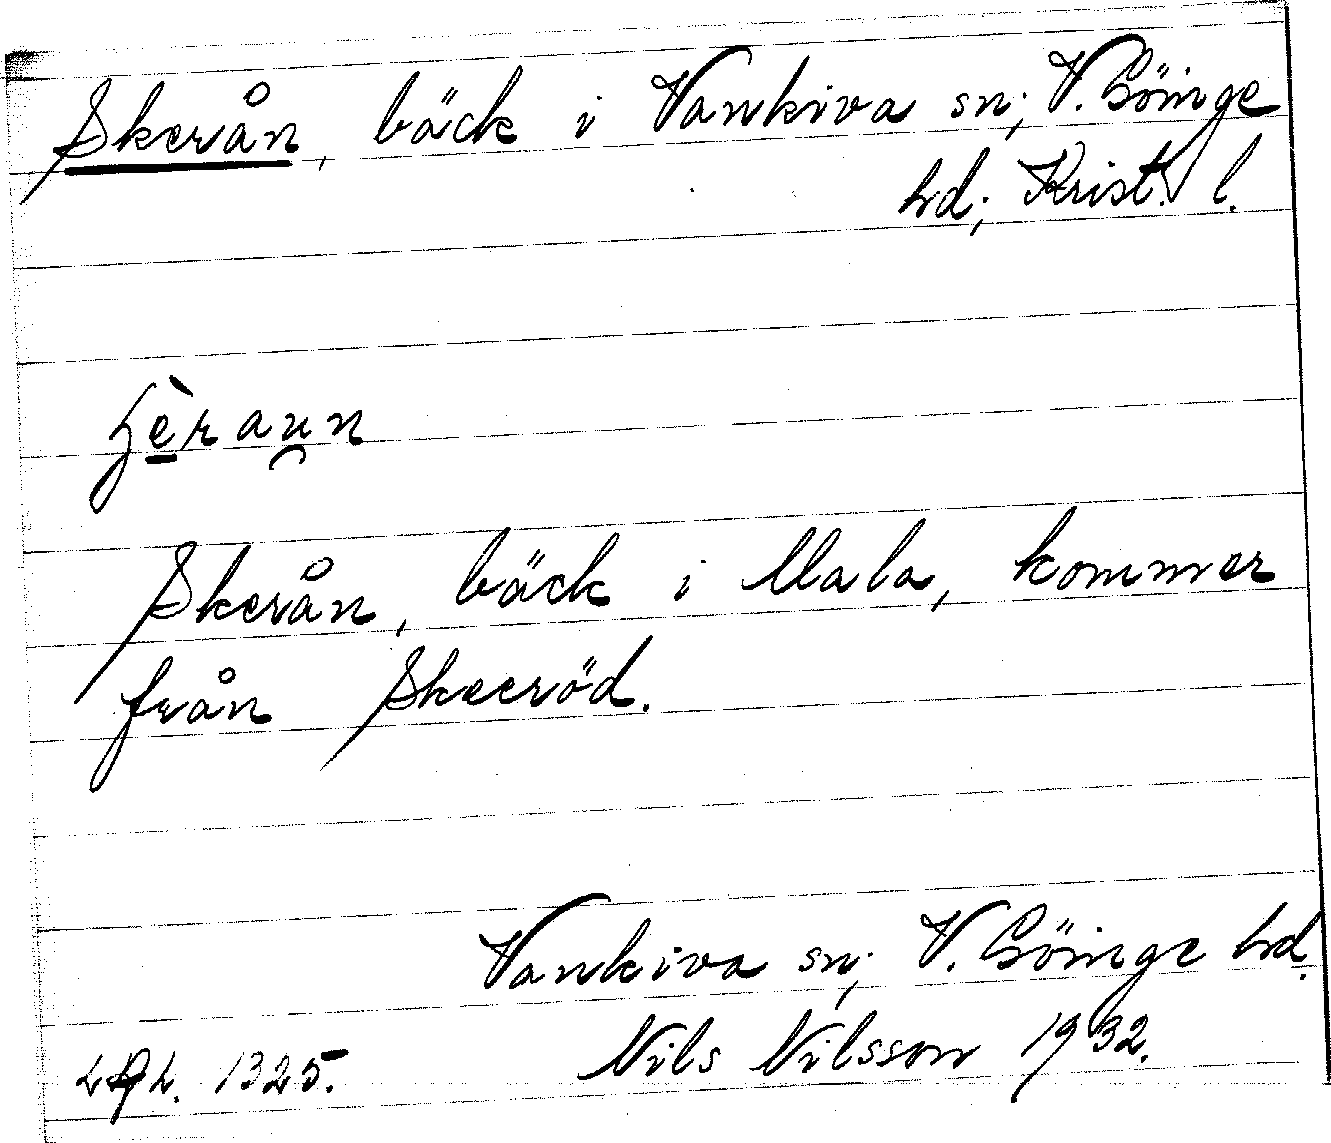 Skerån, bäck i Vankiva sn; V. Göinge
hd; Krist. l.
Skerån, bäck i Mala, kommer
från Skeeröd.
Vankiva sn; V. Göinge hd.
1325. Nils Nilsson 1932.